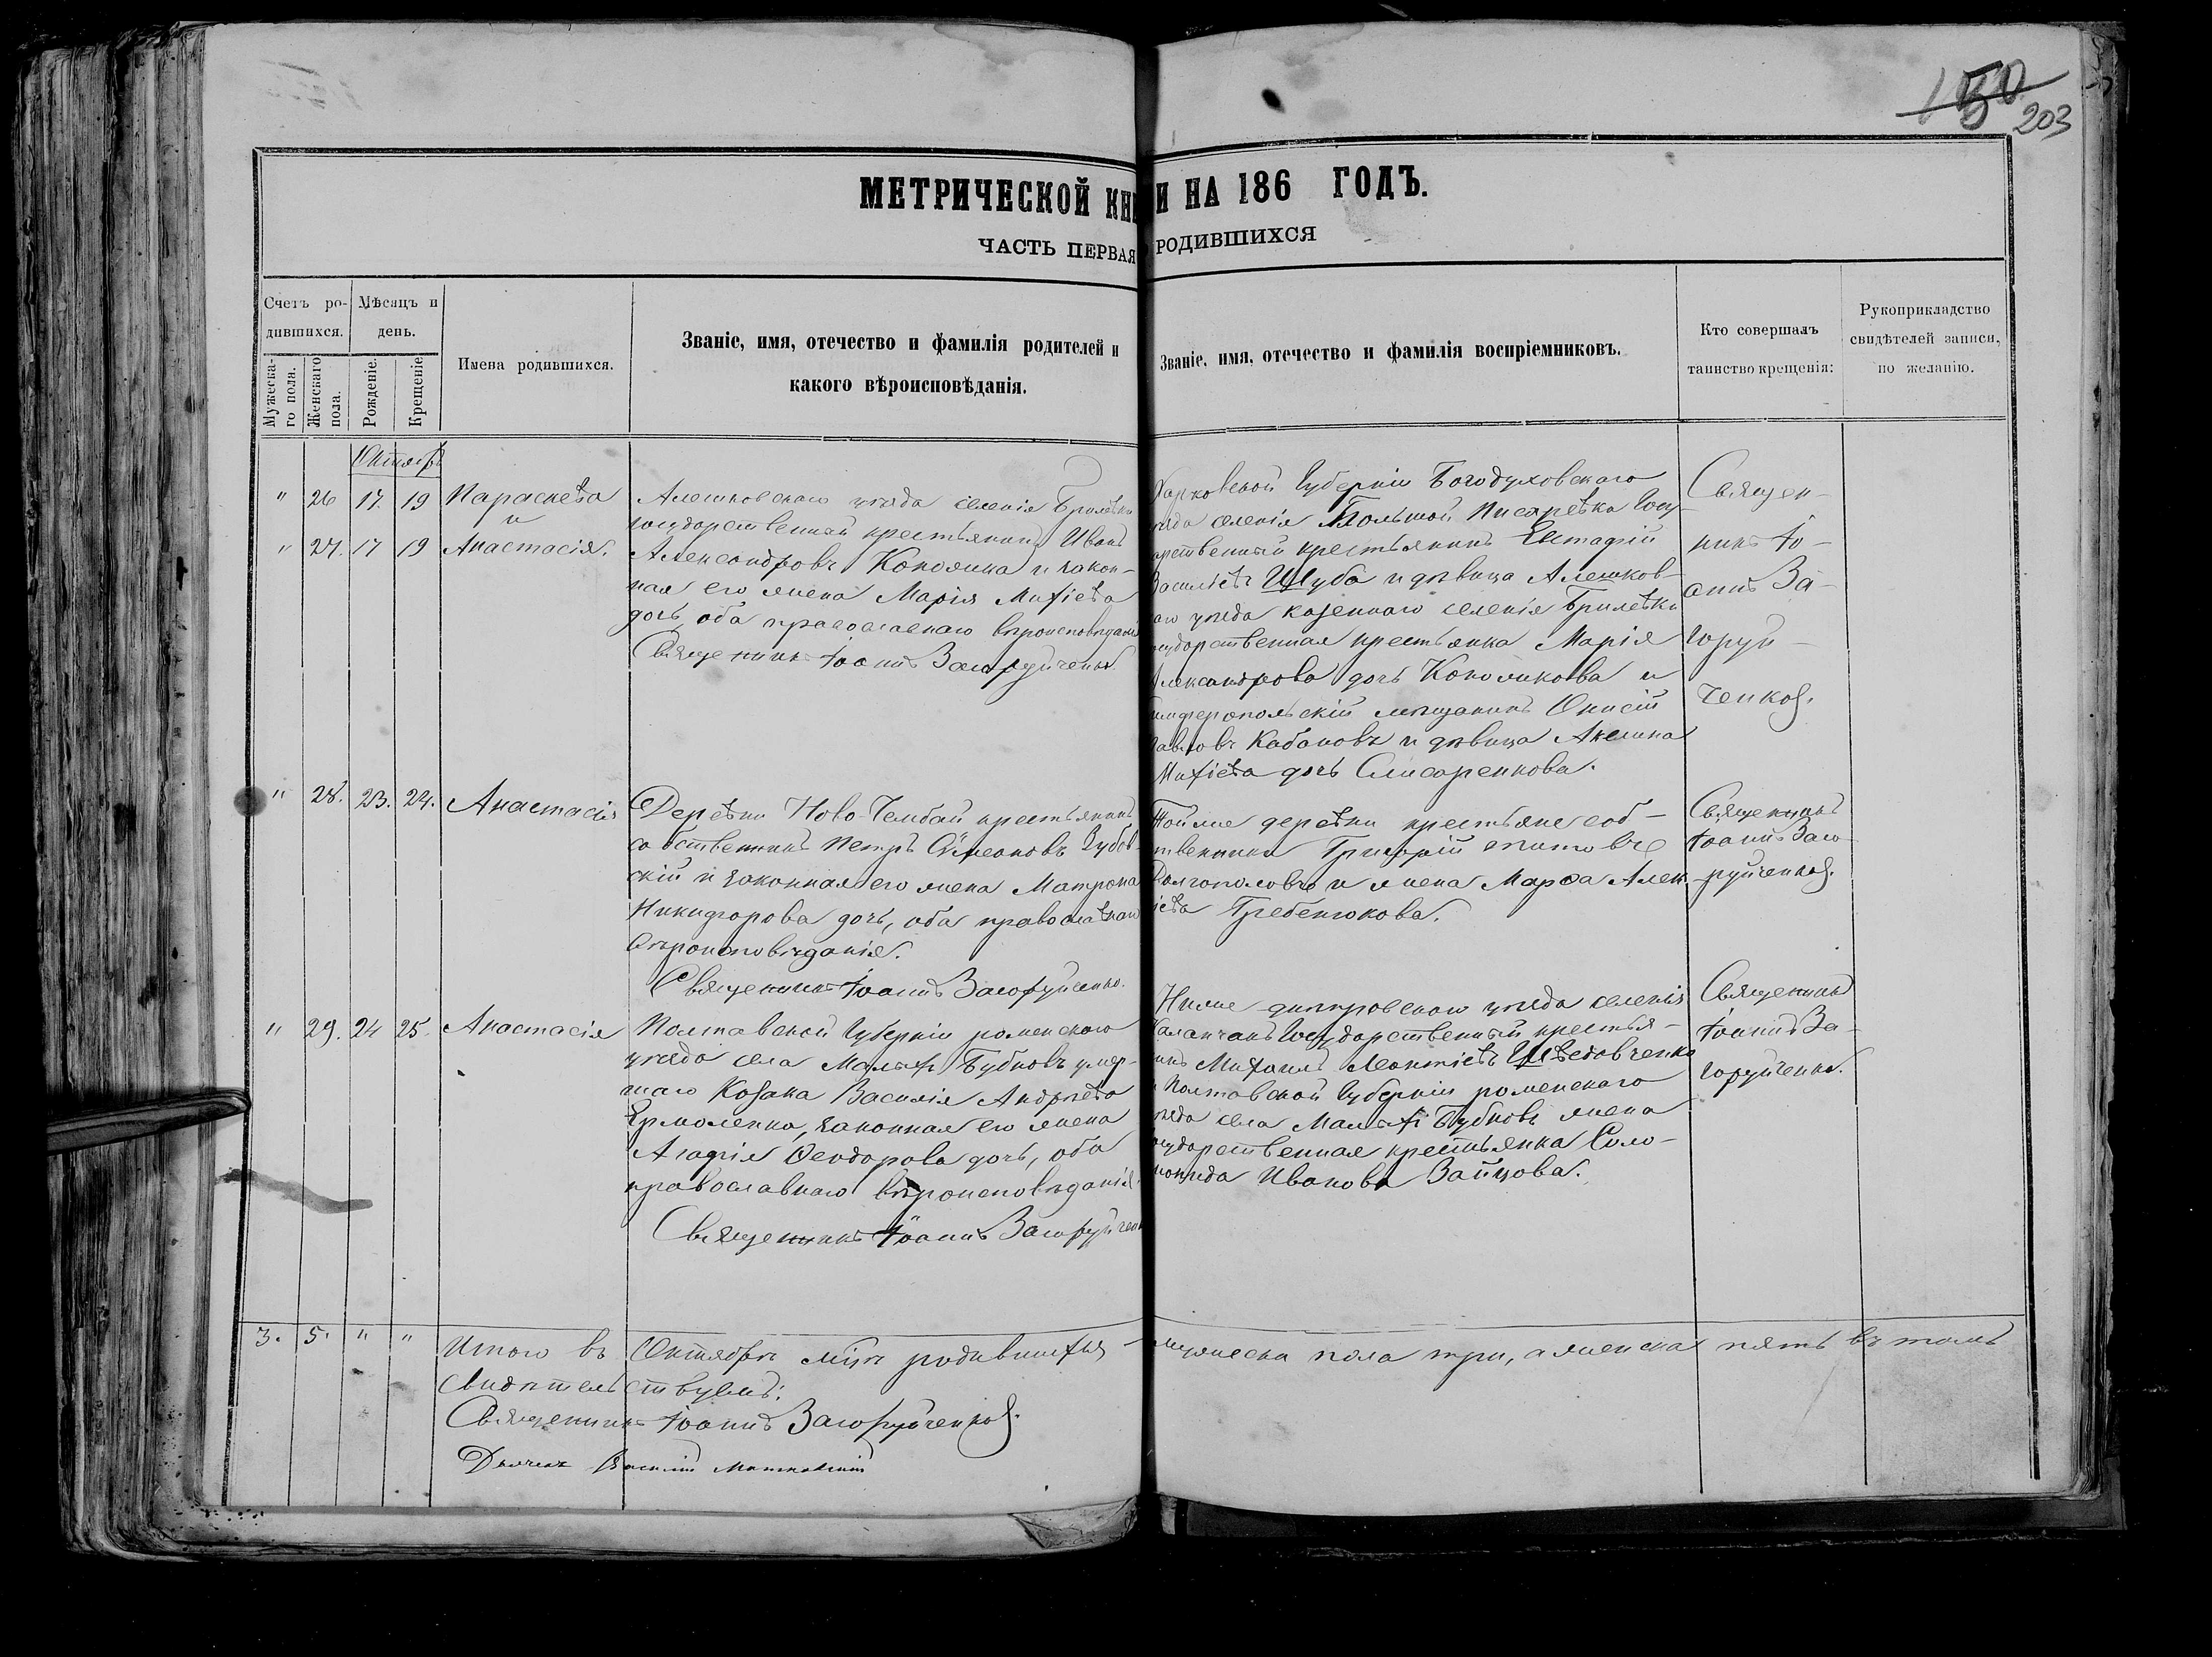 150
203
МЕТРИЧЕСКОЙ КНИ И НА 186 ГОДЪ.
ЧАСТЬ ПЕРВАЯ РОДИВШИХСЯ
Счетъ ро-
дившихся.
Мужеска-
го пола.
Женскаго
пола.
Мѣсяцъ и
день.
Рожденіе.
Крещеніе.
Имена родившихся.
Званіе, имя, отечество и фамилія родителей и
какого вѣроисповѣданія.
Званіе, имя, отечество и фамилія воспріемниковъ.
Кто совершалъ
таинство крещенія:
Рукоприкладство
свидѣтелей записи,
по желанію.
Октябрь
" 26 17. 19 Параскева
и
" 27. 17 19 Анастасія.
Алешковскаго уѣзда селенія Брилевки
государственный крестьянинъ Иванъ
Александровъ и закон-
ная его жена Марія Михіева
дочь, оба православнаго вѣроисповѣданія
Священникъ Іоаннъ Загоруйченко.
Харковской Губерніи Богодуховскаго
уѣзда селенія Большой Писаревка Госу-
дарственный крестьянинъ Евстафій
Василіевъ Шуба и дѣвица Алешков-
скаго уѣзда казеннаго селенія Брилевки
государственная крестьянка Марія
Александрова дочь и
симферопольскій мѣщанинъ Онисій
Павловъ Кабановъ и дѣвица Акелина
Михіева дочь Слисаренкова.
Священ-
никъ Іо-
аннъ За-
горуй-
ченко.
" 28. 23. 24. Анастасія
Деревни Ново-Чембай крестьянинъ
собственникъ Петръ Симеоновъ Зубов-
скій и законная его жена Матрона
Никифорова дочь, оба православнаго
вѣроисповѣданія.
Священникъ Іоаннъ Загоруйченко.
Тойже деревни крестьяне соб-
ственники Григорій
Долгополовъ и жена Марфа Алек-
сіева Гребенюкова.
Священникъ
Іоаннъ Заго-
руйченко.
" 29. 24 25. Анастасія
Полтавской Губерніи роменскаго
уѣзда села Малыхъ Бубновъ умер-
шаго Козака Василія Андреева
Ермоленко, законная его жена
Агафія Ѳеодорова дочь, оба
православнаго вѣроисповѣданія.
Священникъ Іоаннъ Загоруйченко
Ниже днепровскаго уѣзда селенія
Каланчакъ Государственный крестья-
нинъ Михаилъ Леонтіевъ
и Полтавской Губерніи роменскаго
уѣзда села Малыхъ Бубновъ жена
государственная крестьянка Соло-
монида Иванова Зайцова.
Священникъ
Іоаннъ За-
горуйченко.
3. 5. " " Итого въ Октябрѣ мцѣ родившихся мужеска пола три, а женска пять въ томъ
Свидѣтельствуемъ:
Священникъ Іоаннъ Загоруйченко.
Дьячекъ Василій